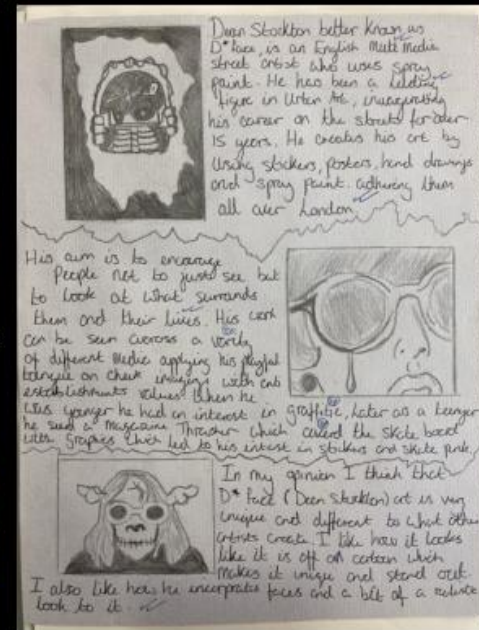 Dean Stockton better known as
D*Face, is an English Multi Media
street artist who uses spray
paint. He has been a leading
figure in Urban Art,
his career on the streets for over
15 years. He creates his art by
using stickers, posters, hand drawings
and spray paint. adhering them
all over London
His aim is to encourage
People not to just see but
to look at what surrands
them and their lives. His work
can be seen across a
of different Media applying his playful
tongue on cheek with anti
establishments values. When he
was younger he had an interest in Later as a teenager
he a Thrasher which the skate board
with Graphics which led to his intrest in stickers and skate punk.
In my opinion I think that
D* Face (Dean Stockton) art is very
unique and different to what other
artists create. I like how it looks
like it is off a cartoon which
makes it uniqe and stand out.
I also like how he faces and a bit of a
look to it.